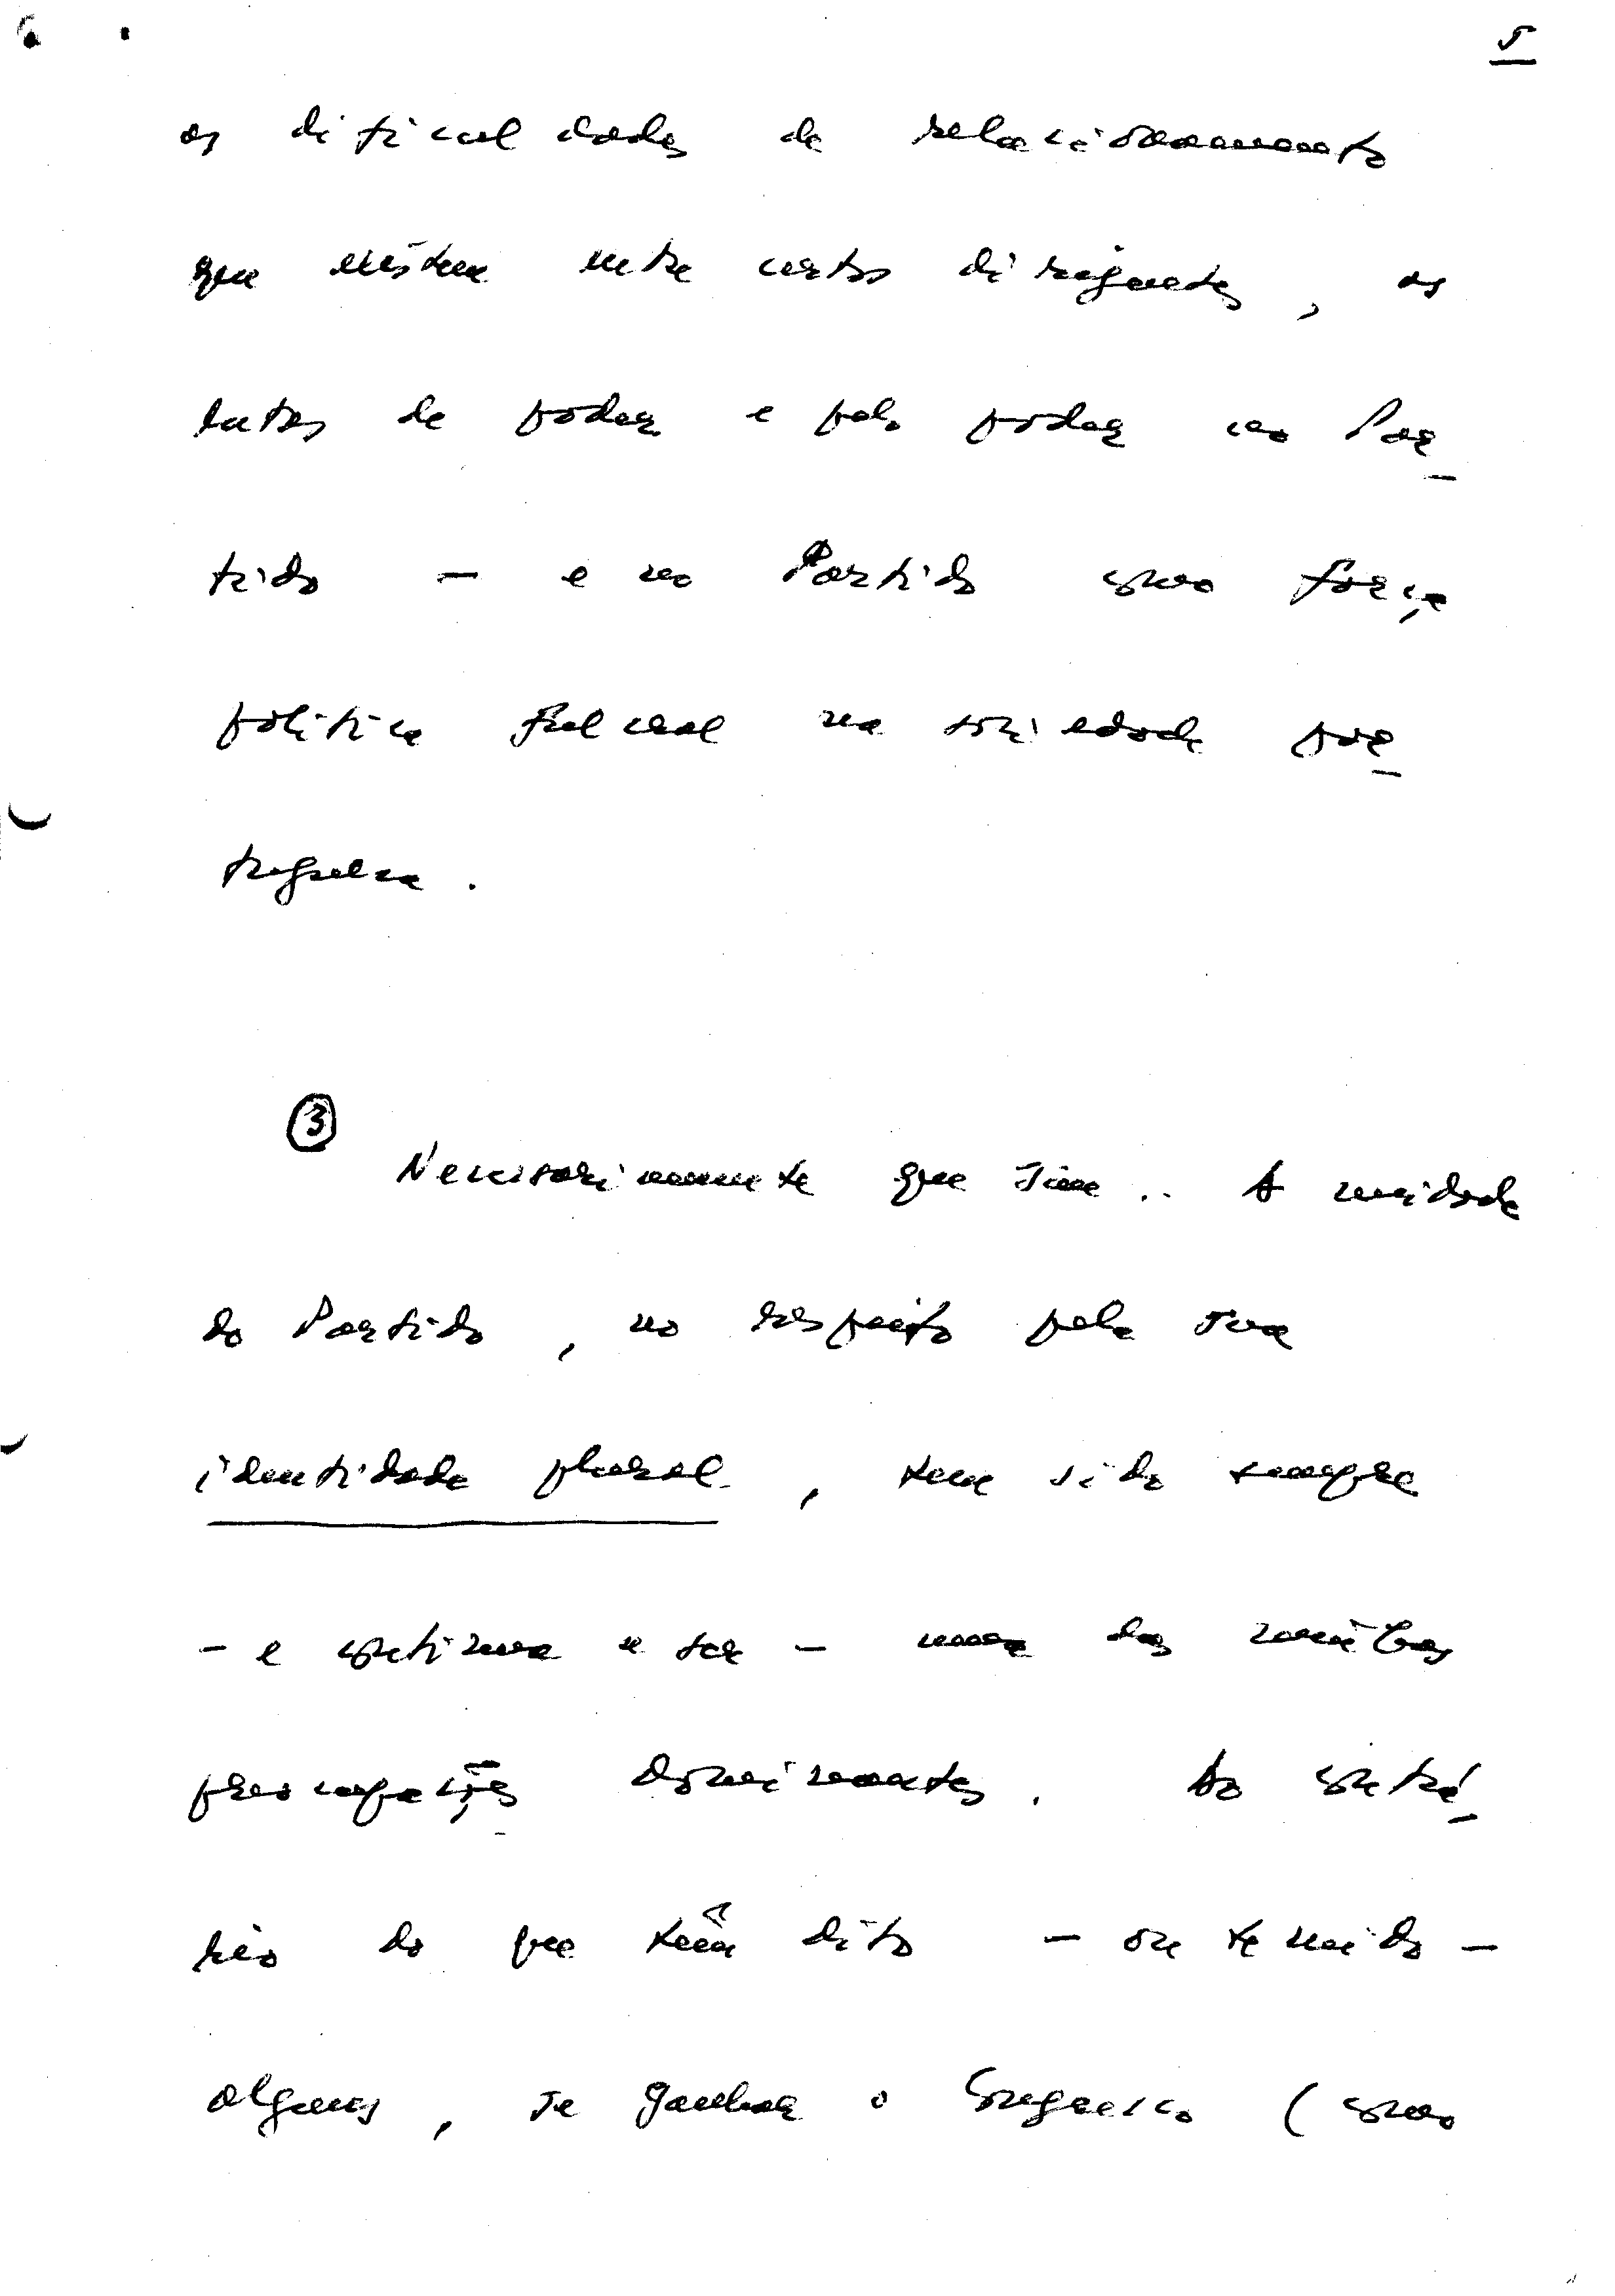 5
as dificuldades de relacionamento
que existem entre certos dirigentes, as
lutas de poder e pelo poder no Par-
tido - e no Partido como força
política fulcral na sociedade por-
tuguesa.
③
Necessariamente que sim.. A unidade
do Partido, no respeito pela sua
identidade plural, tem sido sempre
- e continua a ser - uma das minhas
preocupações dominantes. Ao contrá-
rio do que têm dito - ou temido -
alguns, se ganhar o Congresso (como